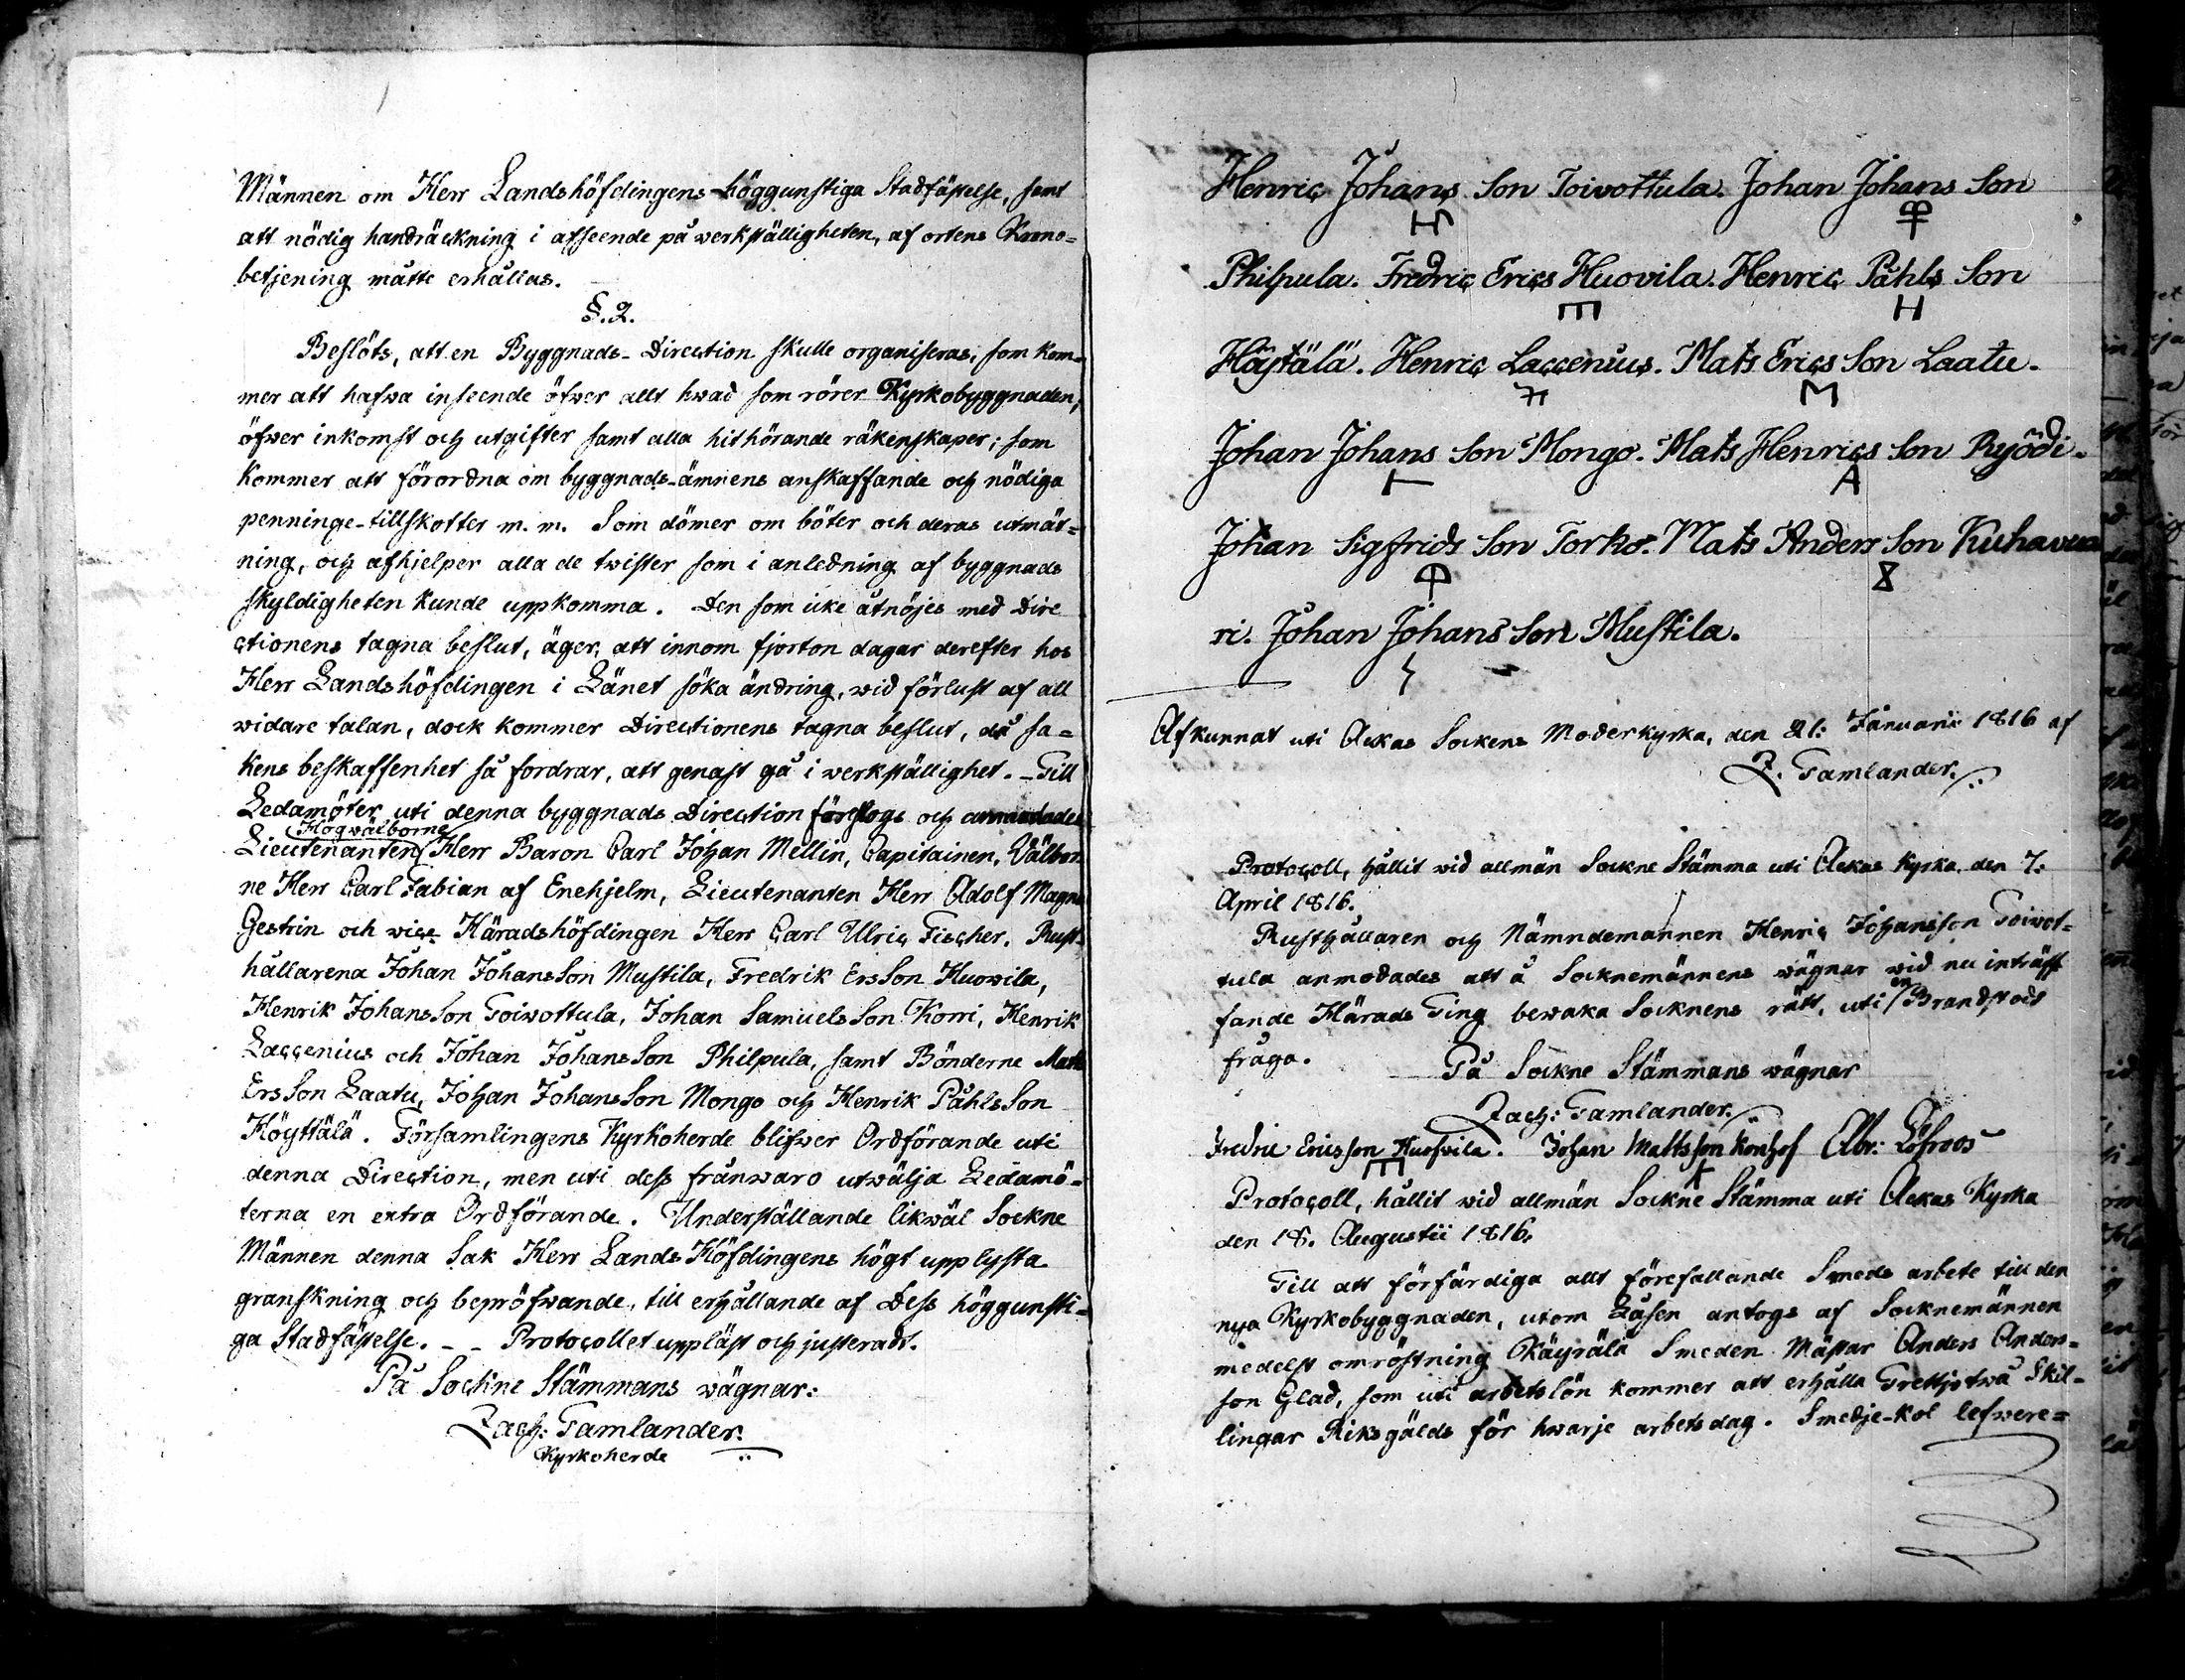 Männen om Herr Landshöfdingens höggunstiga Stadfästelse, samt
att nödig handräckning i afseende på werkställigheten, af ortens Krono=
betjening måtte erhållas.
§. 2.
Beslöts, att en Byggnads-Direction skulle organiseras, som kom=
mer att hafwa inseende öfwer allt hwad som rörer Kyrkobyggnaden,
öfwer inkomst och utgifter samt alla hithörande räkenskaper; som
kommer att förordna om byggnads-ämnens anskaffande och nödiga
penninge-tillskotter m. m. Som dömer om böter och deras utmät=
ning, och afhjelper alla de twister som i anledning af byggnads
skyldigheten kunde uppkomma. Den som icke åtnöjes med Dire
ctionens tagna beslut, äger, att innom fjorton dagar derefter hos
Herr Landshöfdingen i Länet söka ändring, wid förlust af all
widare talan, dock kommer Directionens tagna beslut, då sa=
kens beskaffenhet så fordrar, att genast gå i werkställighet. - Till
Ledamöter uti denna byggnads Direction föreslogs och
Högwälborne
Lieutenanten Herr Baron Carl Johan Mellin, Capitainen, Välbor
ne Herr Carl Fabian af Enehjelm, Lieutenanten Herr Adolf Magn
Gestrin och vice Häradshöfdingen Herr Carl Ulric Fischer, Rust=
hållarena Johan JohansSon Mustila, Fredrik ErsSon Huowila,
Henrik JohansSon Toiwottula, Johan SamuelsSon Korri, Henrik
Laccenius och Johan JohansSon Philpula, samt Bönderne Mats
ErsSon Laatu, Johan JohansSon Mongo och Henrik PåhlsSon
Höyttälä. Församlingens Kyrkoherde blifwer Ordförande uti
denna Direction, men uti dess frånwaro utwälja Ledamö=
terna en extra Ordförande. Underställande likwäl Sockne
Männen denna Sak Herr Lands Höfdingens högt upplysta
granskning och bepröfwande, till erhållande af Dess höggunsti=
ga Stadfästelse. - - Protocollet uppläst och justeradt.
På Sockne Stämmans wägnar:
Zach: Tamlander.
Kyrkoherde
Henric Johans Son Toivottula. Johan Johans Son
Philpula. Fredric Erics Huovila. Henric Påhls Son
Höytälä. Henric Laccenius. Mats Erics Son Laatu.
Johan Johans Son Mongo. Mats Henrics Son Ryödi.
Johan Sigfrids Son Torko. Mats Anders Son Kuhavua
ri. Johan Johans Son Mustila.
Afkunnat uti Ackas Sockens Moderkyrka, den 21: Januarii 1816 af
Z. Tamlander.
Protocoll, hållit wid allmän Sockne Stämma uti Ackas Kyrka, den 7:
April 1816.
Rusthållaren och Nämndemannen Henric Johansson Toiwot=
tula anmodades att å Socknemännens wägnar wid nu inträf
fande Härads Ting bewaka Socknens rätt, uti en Brandstods
fråga.
På Sockne Stämmans wägnar
Zach: Tamlander.
Fredric Ericsson Huofvila. Johan Mattsson Abr: Löfroos
Protocoll, hållit wid allmän Sockne Stämma uti Ackas Kyrka
den 18. Augustii 1816.
Till att förfärdiga allt förefallande Smeds arbete till den
nya Kyrkobyggnaden, utom Låsen antogs af Socknemännen
medelst omröstning Käyrälä Smeden Mästar Anders Anders=
son Glad, som uti arbetslön kommer att erhålla Trettjotwå Skil=
lingar Riksgälds för hwarje arbetsdag. Smedje-kol lefwere=